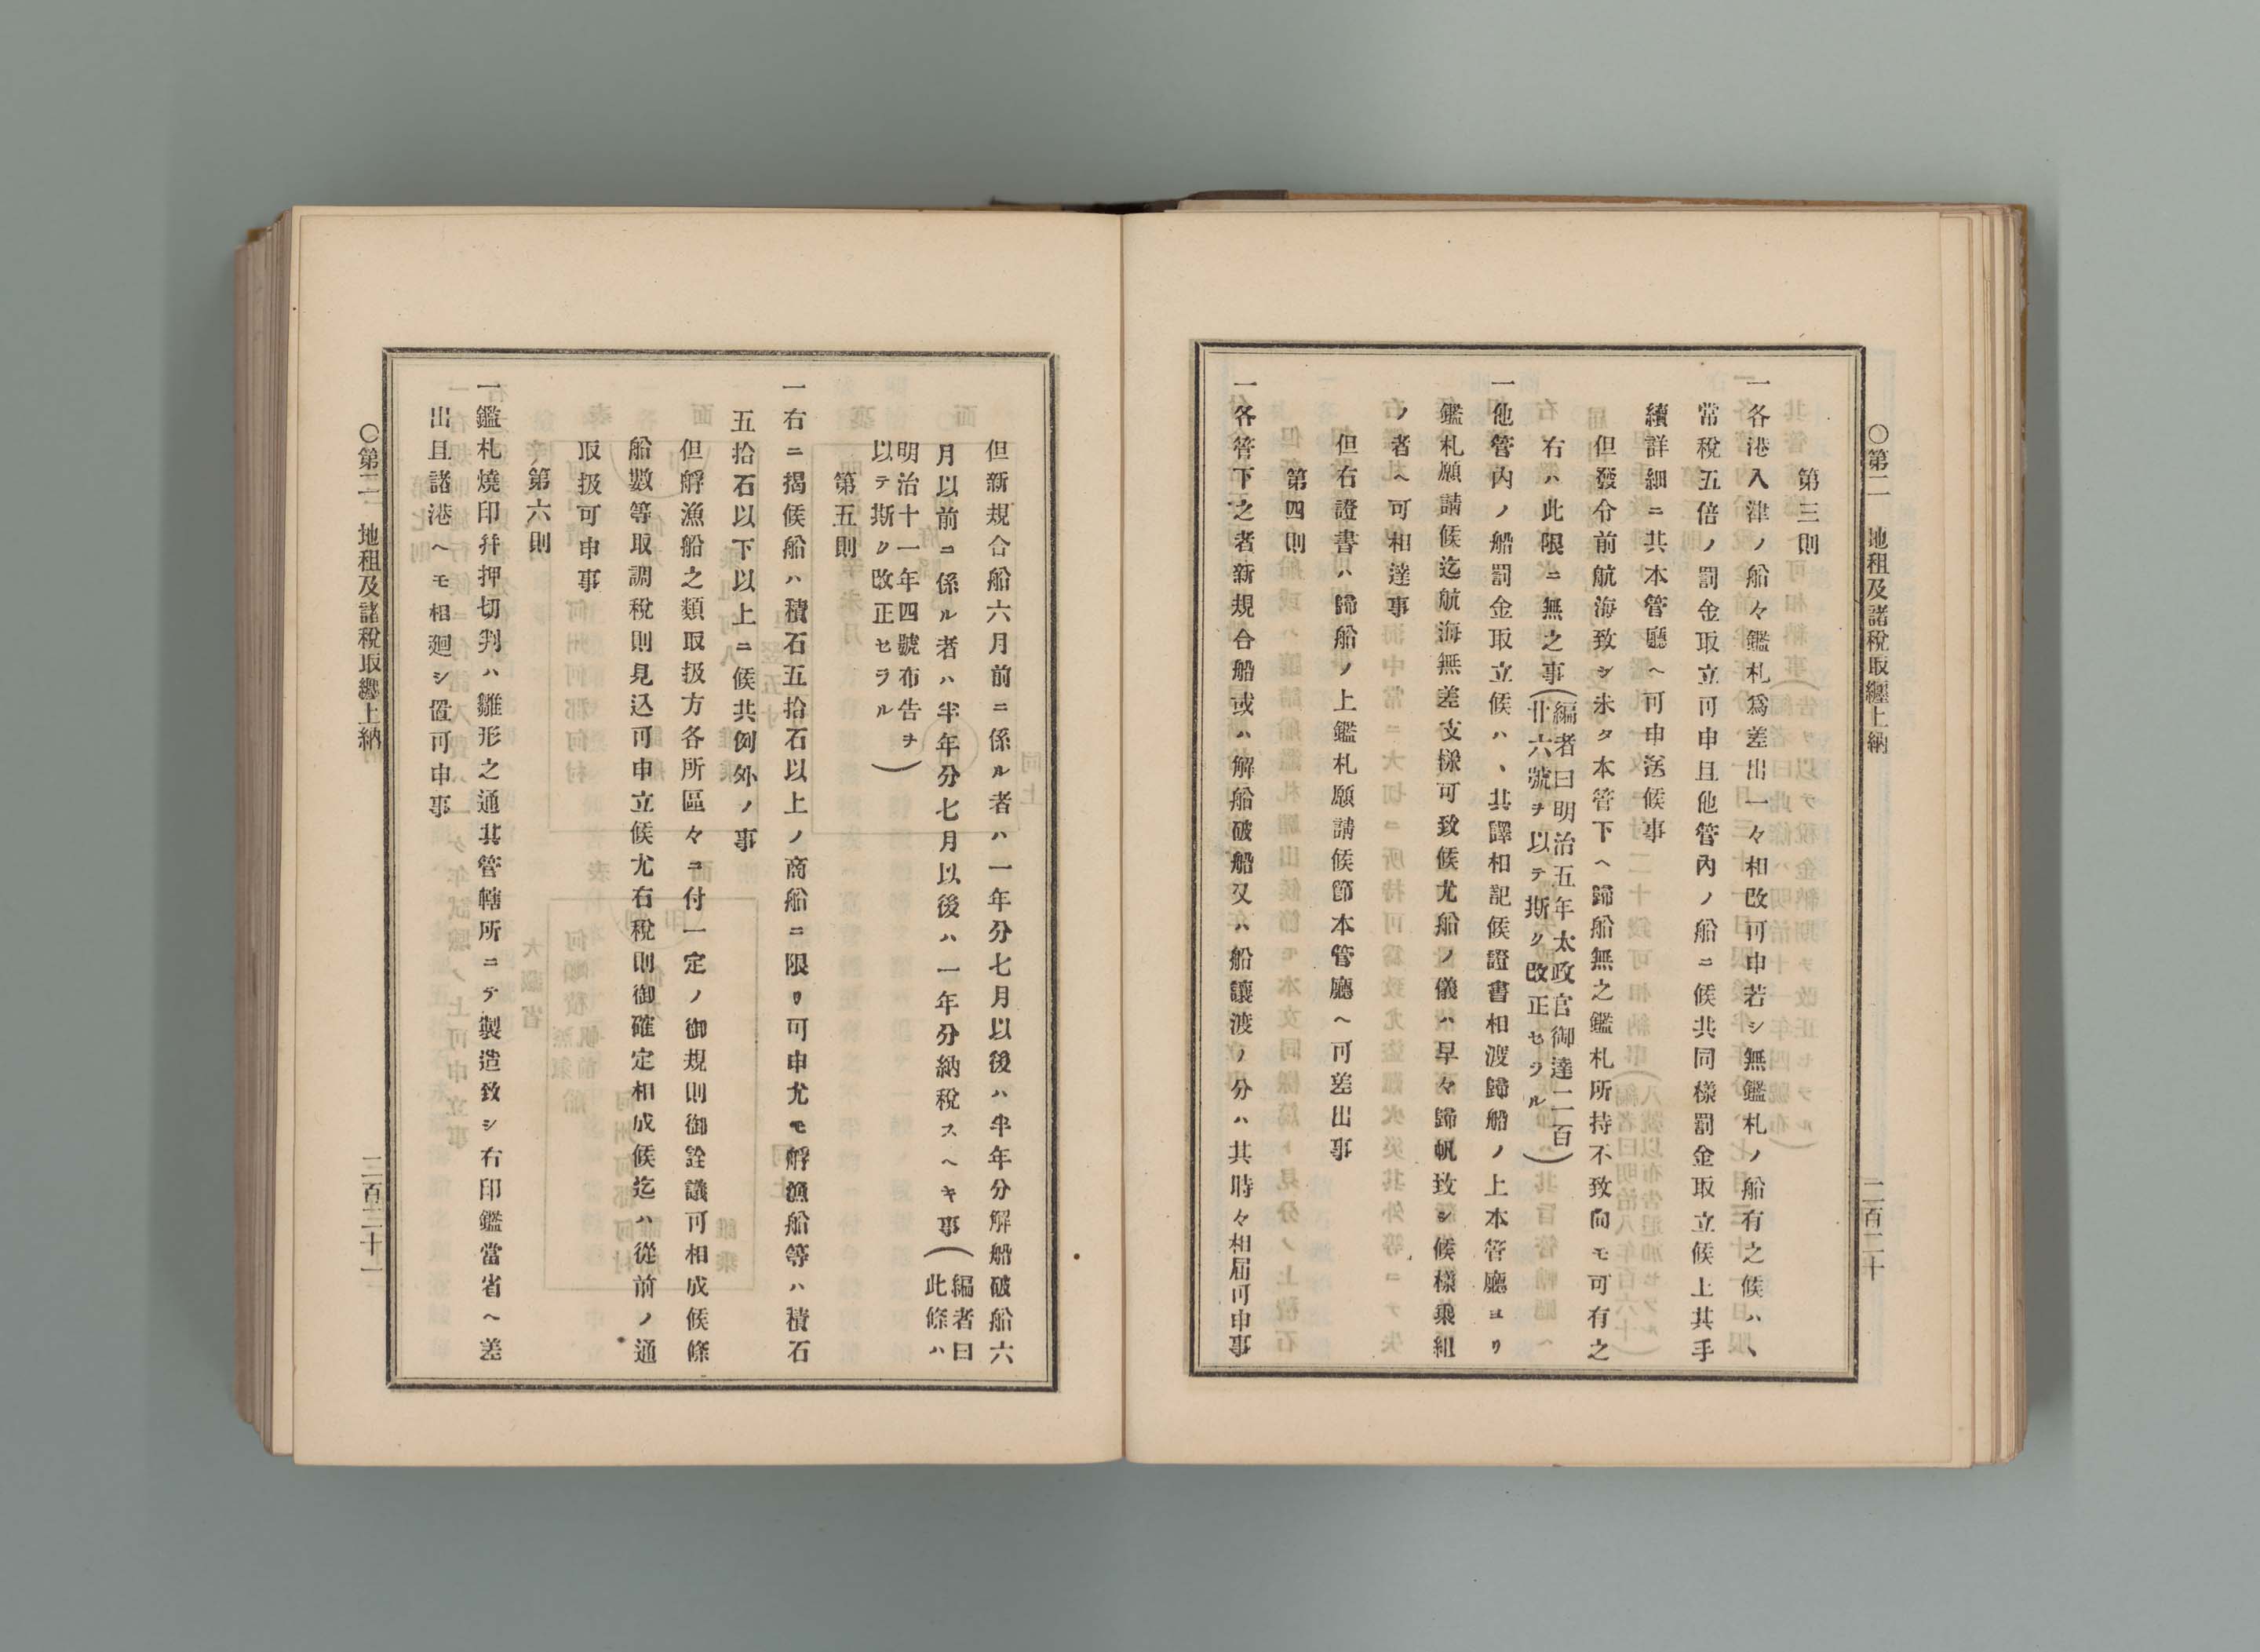 ○第二　地租及諸稅取纒上納　二百二十
第三則
一各港入津ノ船々鑑札爲差出一々相改可申若シ無鑑札ノ船有之候ハヽ
常稅五倍ノ罰金取立可申且他管內ノ船ニ候共同樣罰金取立候上其手
續詳細ニ其本管廳ヘ可申送候事
但發令前航海致シ未タ本管下ヘ歸船無之鑑札所持不致向モ可有之
右ハ此限ニ無之事(編者曰明治五年太政官御達二百
廿六號ヲ以テ斯ク改正セラル)
一他管內ノ船罰金取立候ハヽ其譯相記候證書相渡歸船ノ上本管廳ヨリ
鑑札願請候迄航海無差支樣可致候尤船ノ儀ハ早々歸帆致シ候樣乘組
ノ者ヘ可相達事
但右證書ハ歸船ノ上鑑札願請候節本管廳ヘ可差出事
第四則
一各管下之者新規合船或ハ解船破船又ハ船讓渡ノ分ハ其時々相屆可申事
但新規合船六月前ニ係ル者ハ一年分七月以後ハ半年分解船破船六
月以前ニ係ル者ハ半年分七月以後ハ一年分納稅スヘキ事(編者曰
此條ハ
明治十一年四號布告ヲ
以テ斯ク改正セラル)
第五則
一右ニ揭候船ハ積石五拾石以上ノ商船ニ限リ可申尤モ艀漁船等ハ積石
五拾石以下以上ニ候共例外ノ事
但艀漁船之類取扱方各所區々ニ付一定ノ御規則御詮議可相成候條
船數等取調稅則見込可申立候尤右稅則御確定相成候迄ハ從前ノ通
取扱可申事
第六則
一鑑札燒印幷押切判ハ雛形之通其管轄所ニテ製造致シ右印鑑當省ヘ差
出且諸港ヘモ相廻シ置可申事
○第二　地租及諸稅取纒上納　二百二十一